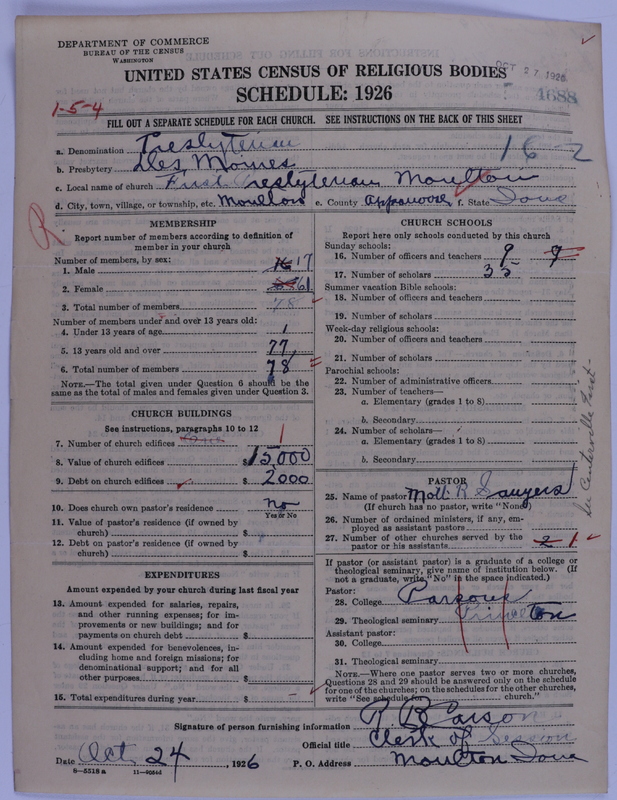 DEPARTMENT OF COMMERCE
BUREAU OF THE CENSUS
WASHINGTON
OCT 27 1926
UNITED STATES CENSUS OF RELIGIOUS BODIES
SCHEDULE: 1926
4688
1-5-4
FILL OUT A SEPARATE SCHEDULE FOR EACH CHURCH. SEE INSTRUCTIONS ON THE BACK OF THIS SHEET
a. Denomination Presbyterian
16-2
b. Presbytery Des Moines
c. Local name of church First Presbyterian Moulton
d. City, town, village, or township, etc. Moulton e. County Appanoose f. State Iowa
R
MEMBERSHIP
Report number of members according to definition of
member in your church
Number of members, by sex:
1. Male 17
2. Female 61
3. Total number of members 78
Number of members under and over 13 years old:
4. Under 13 years of age 1
5. 13 years old and over 77
6. Total number of members 78
NOTE.—The total given under Question 6 should be the
same as the total of males and females given under Question 3.
CHURCH BUILDINGS
See instructions, paragraphs 10 to 12
7. Number of church edifices 1
8. Value of church edifices $15,000
9. Debt on church edifices $2000
10. Does church own pastor's residence no
Yes or No
11. Value of pastor's residence (if owned by
church) $
12. Debt on pastor's residence (if owned by
church) $
EXPENDITURES
Amount expended by your church during last fiscal year
13. Amount expended for salaries, repairs,
and other running expenses; for im-
provements or new buildings; and for
payments on church debt $
14. Amount expended for benevolences, in-
cluding home and foreign missions; for
denominational support; and for all
other purposes $
15. Total expenditures during year $ —
CHURCH SCHOOLS
Report here only schools conducted by this church
Sunday schools:
16. Number of officers and teachers 9 9
17. Number of scholars 35
Summer vacation Bible schools:
18. Number of officers and teachers
19. Number of scholars
Week-day religious schools:
20. Number of officers and teachers
21. Number of scholars
Parochial schools:
22. Number of administrative officers
23. Number of teachers—
a. Elementary (grades 1 to 8)
b. Secondary
24. Number of scholars—
a. Elementary (grades 1 to 8)
b. Secondary
See Centerville First-
PASTOR
25. Name of pastor Mott R Sawyers
(If church has no pastor, write "None")
26. Number of ordained ministers, if any, em-
ployed as assistant pastors
27. Number of other churches served by the
pastor or his assistants 2 1
If pastor (or assistant pastor) is a graduate of a college or
theological seminary, give name of institution below. (If
not a graduate, write "No" in the space indicated.)
Pastor:
28. College Parsons
29. Theological seminary Princeton
Assistant pastor:
30. College
31. Theological seminary
NOTE.—Where one pastor serves two or more churches,
Questions 28 and 29 should be answered only on the schedule
for one of the churches; on the schedules for the other churches,
write "See schedule for church."
Signature of person furnishing information R B Carson
Official title Clerk of Session
Date Oct. 24, 1926 P. O. Address Moulton Iowa
8—5518 a